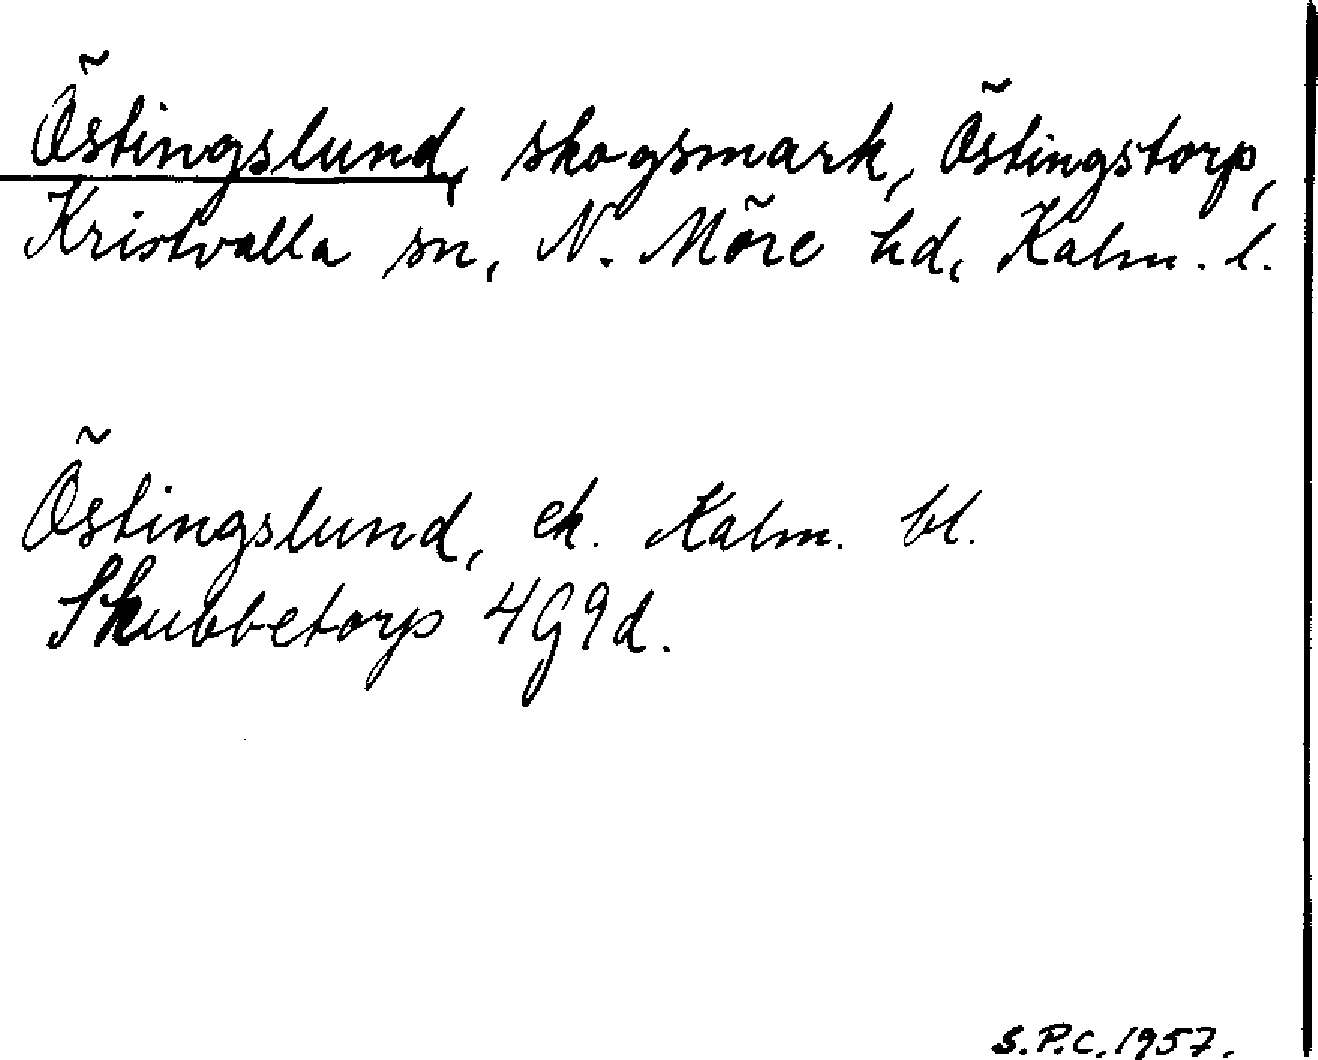 Östingslund, skogsmark, Östingstorp,
Kristvalla sn, N. Möre hd, Kalm. l.
Östingslund, ek. Kalm. bl.
Skubbetorp 4G9d.
S.P.C. 1957.